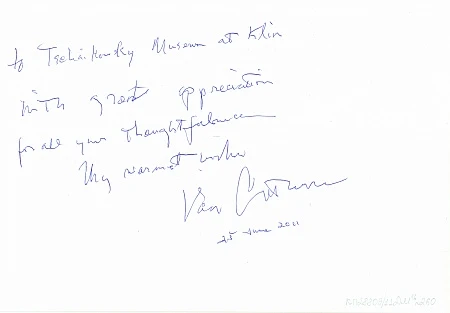 to Tschaikowsky Museum at Klin
with great appreciation
for all your thoughtfulness
My warmest wishes
Van Cliburn
25 June 2011